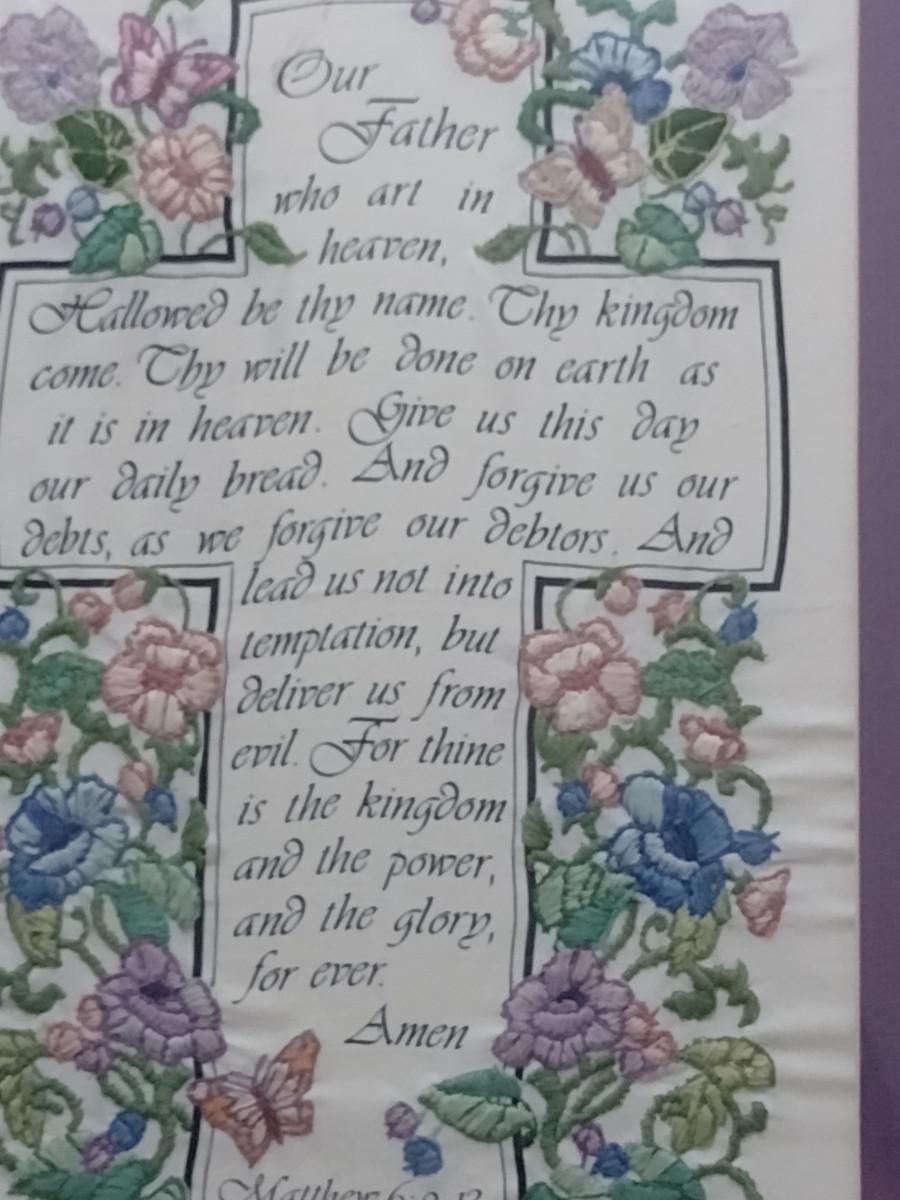 Our
Father
who art in
heaven,
Hallowed be thy name. Thy kingdom
come. Thy will be done on earth as
it is in heaven. Give us this day
our daily bread. And forgive us our
debts, as we forgive our debtors. And
lead us not into
temptation, but
deliver us from
evil. For thine
is the kingdom
and the power,
and the glory,
for ever.
Amen
Matthew 6:9-13